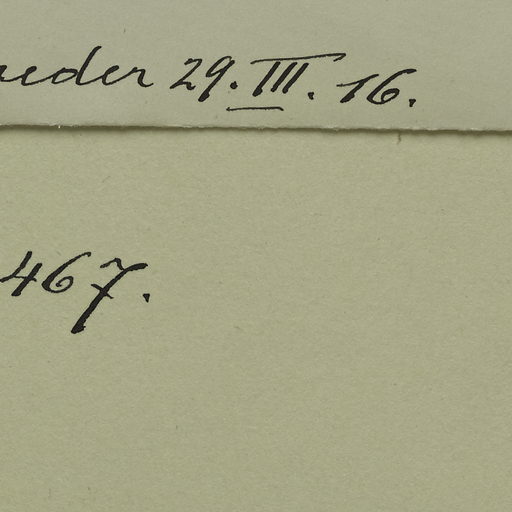 aeder 29. III. 16.
467.